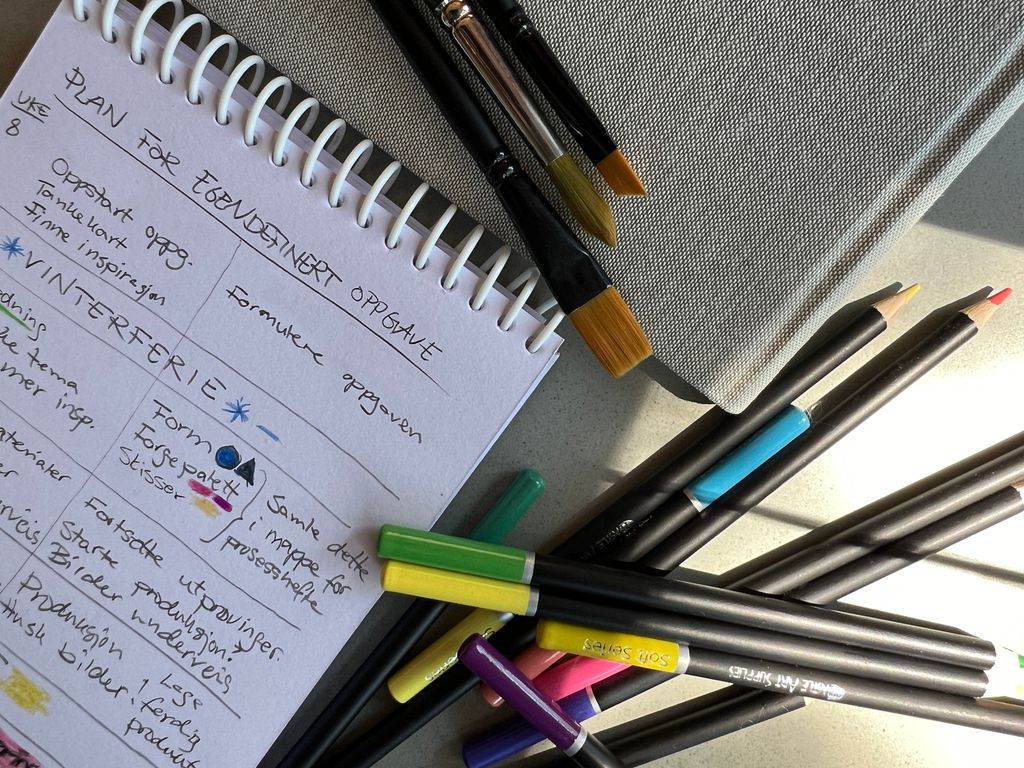 PLAN FOR EGENDEFINERT OPPGAVE
UKE
8
Oppstart oppg.
Tankekart
Finne inspirasjon
Formulere oppgaven
*VINTERFERIE*
tema
insp.
Form
Fargepalett
Skisser
Samle dette
i mappe for
prosesshefte
Fortsette utprøvinger.
Starte produksjon?
Bilder underveis
Produksjon
Husk bilder!
Lage
ferdig
produkt
Soft Series
ART SUPPLIES